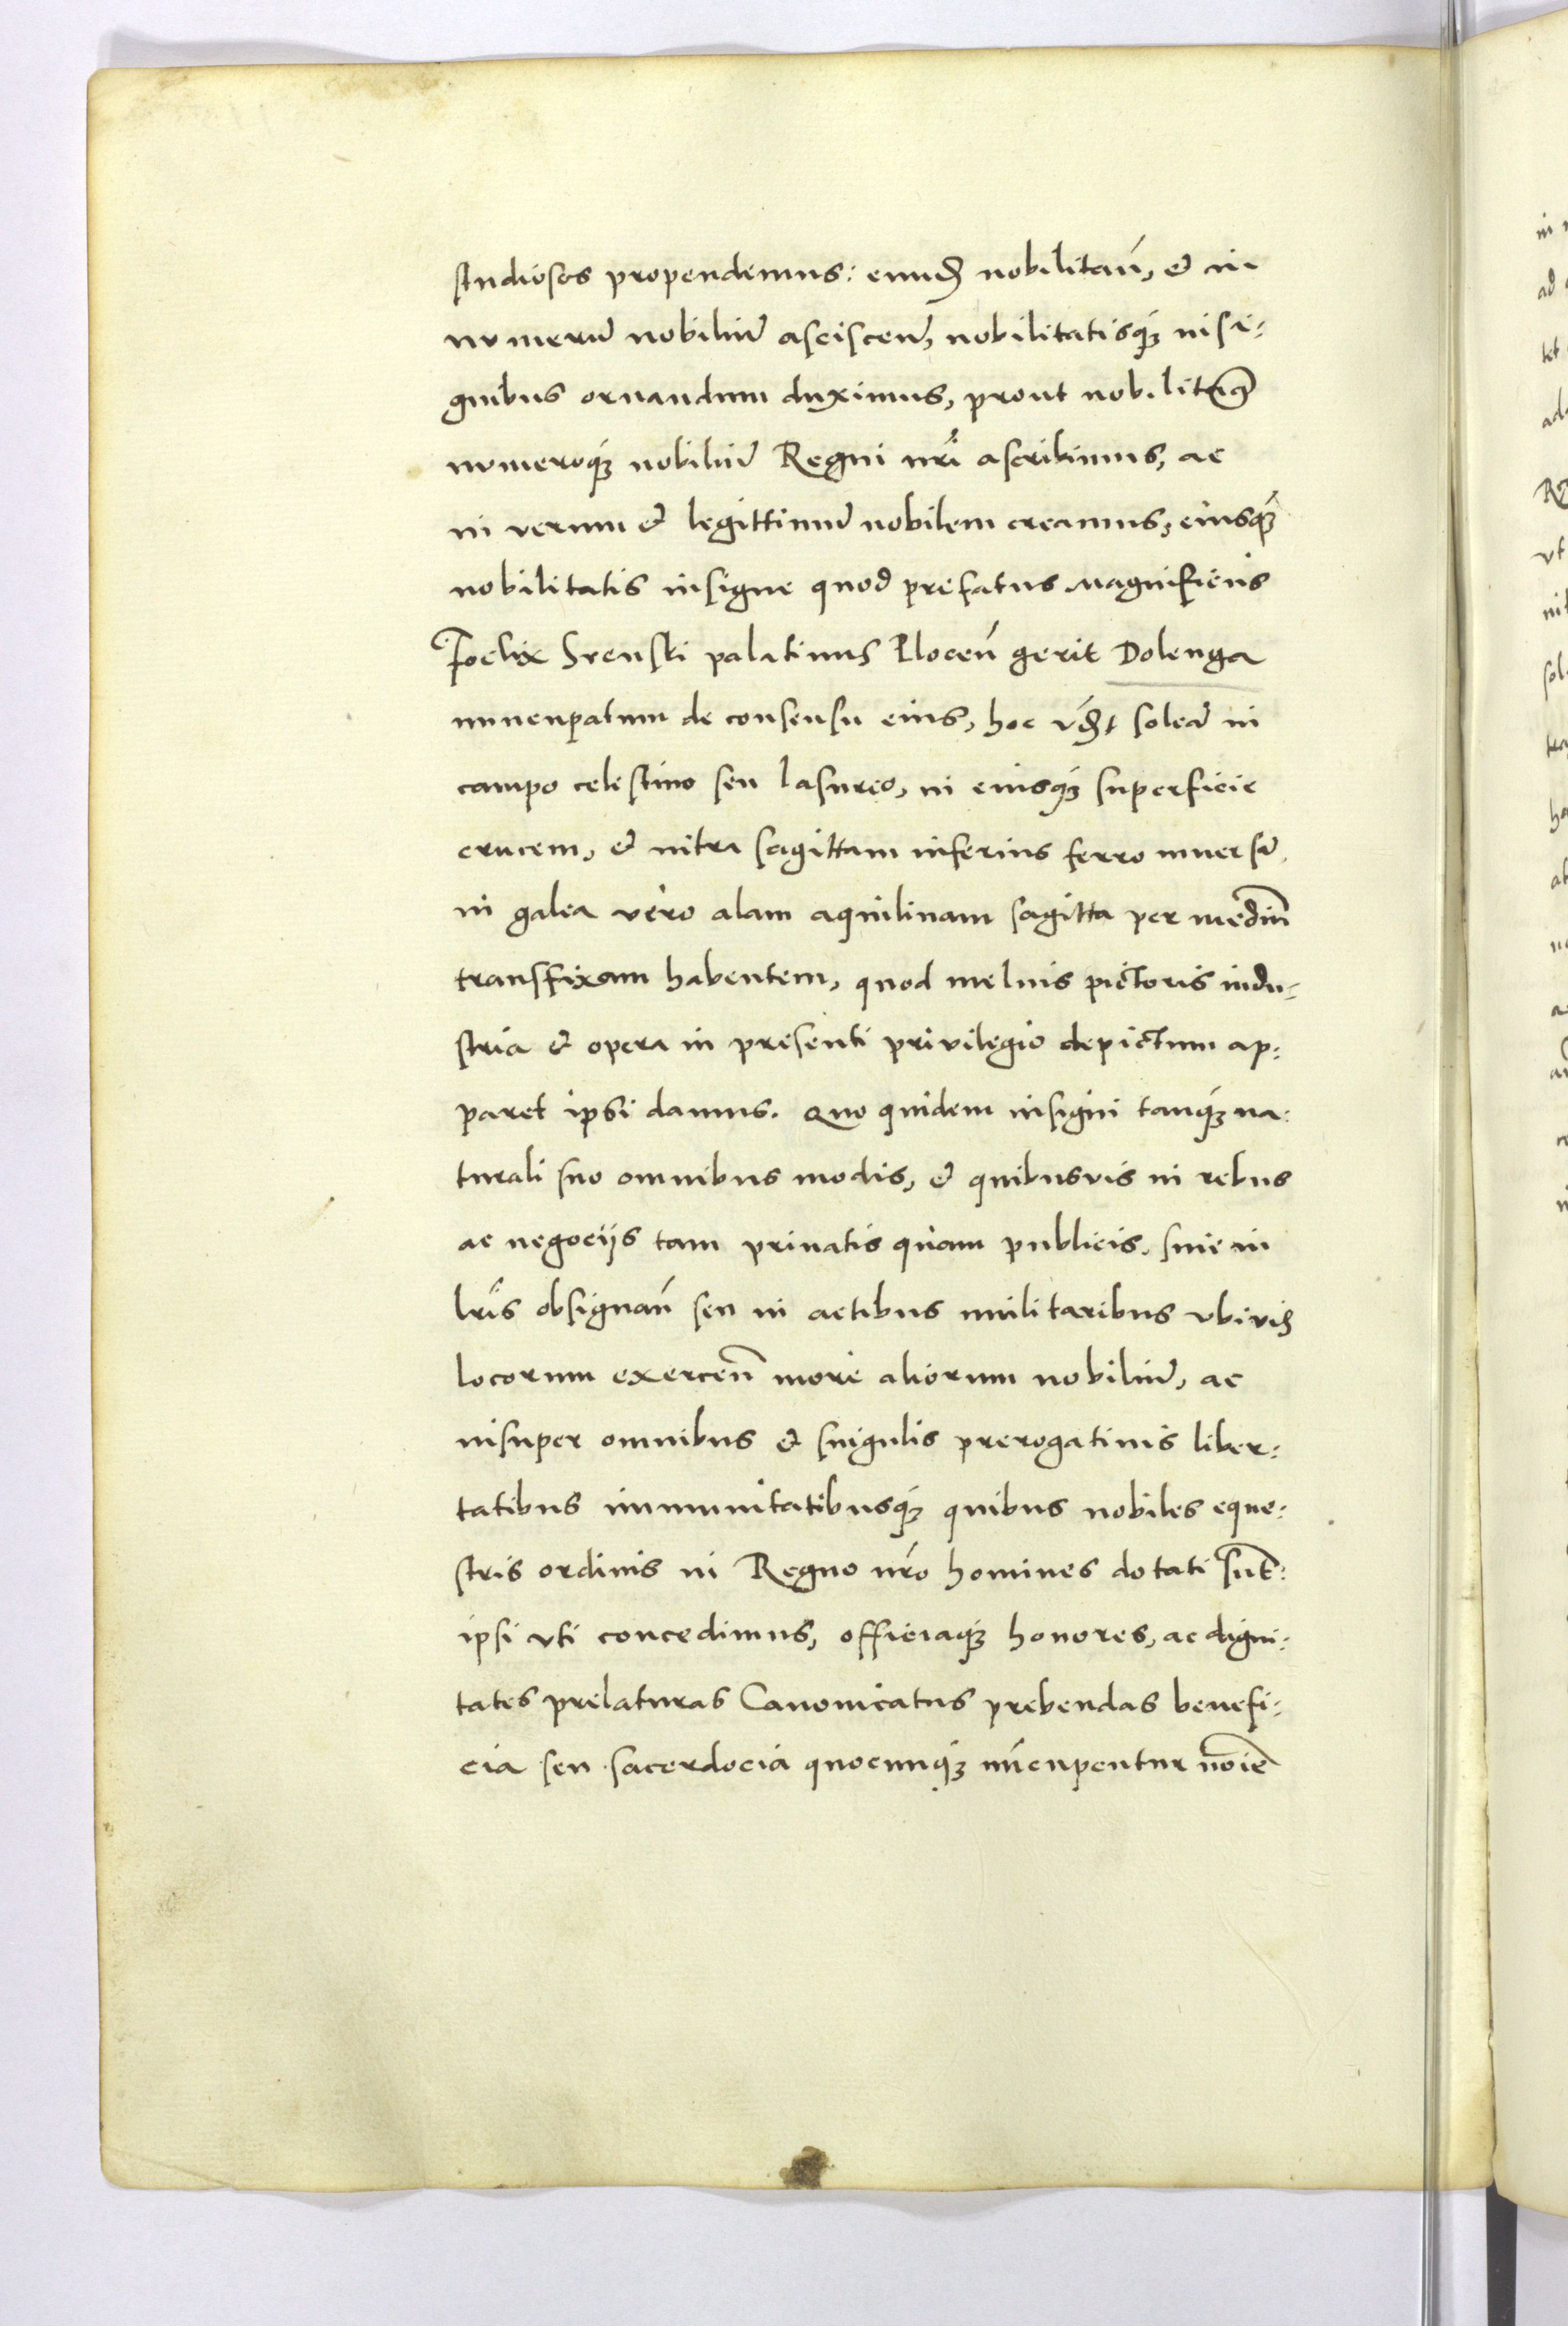 studiosos propendimus: eundẽ nobilitań, et in
numerũ nobiliũ asciscen̄, nobilitatisqꝫ insi-
gnibus ornandum duximus, prout nobilitam9
numeroqꝫ nobiliũ Regni nr̃i ascribimus, ac
in verum et legittimũ nobilem creamus, eiusqꝫ
nobilitatis insigne quod prefatus Magnificus
Foelix Srenski palatinus Plocen̄ gerit Dolenga
nuncupatum de consensu eius, hoc vꝫt soleã in
campo celestino seu lasureo, in eiusqꝫ superficie
crucem, et intra sagittam inferius ferro inuersũ
in galea vero alam aquilinam sagitta per mediũ
transfixam habentem, quod melius pictoris indu-
stria et opera in presenti privilegio depictum ap-
paret ipsi damus. Quo quidem insigni tanqꝫ na-
turali suo omnibus modis, et quibusvis in rebus
ac negociis tam privatis quam publicis, siue in
lr̃is obsignan̄ seu in actibus militaribus vbivis
locorum exercen̄ more aliorum nobiliũ, ac
insuper omnibus et singulis prerogatiuis liber-
tatibus immunitatibusqꝫ quibus nobiles eque-
stris ordinis in Regno nr̃o homines dotati sũt:
ipsi vti concedimus, officiaqꝫ honores, ac digni-
tates prelaturas Canonicatus prebendas benefi-
cia seu sacerdocia quocunqꝫ nũcupentur noĩe